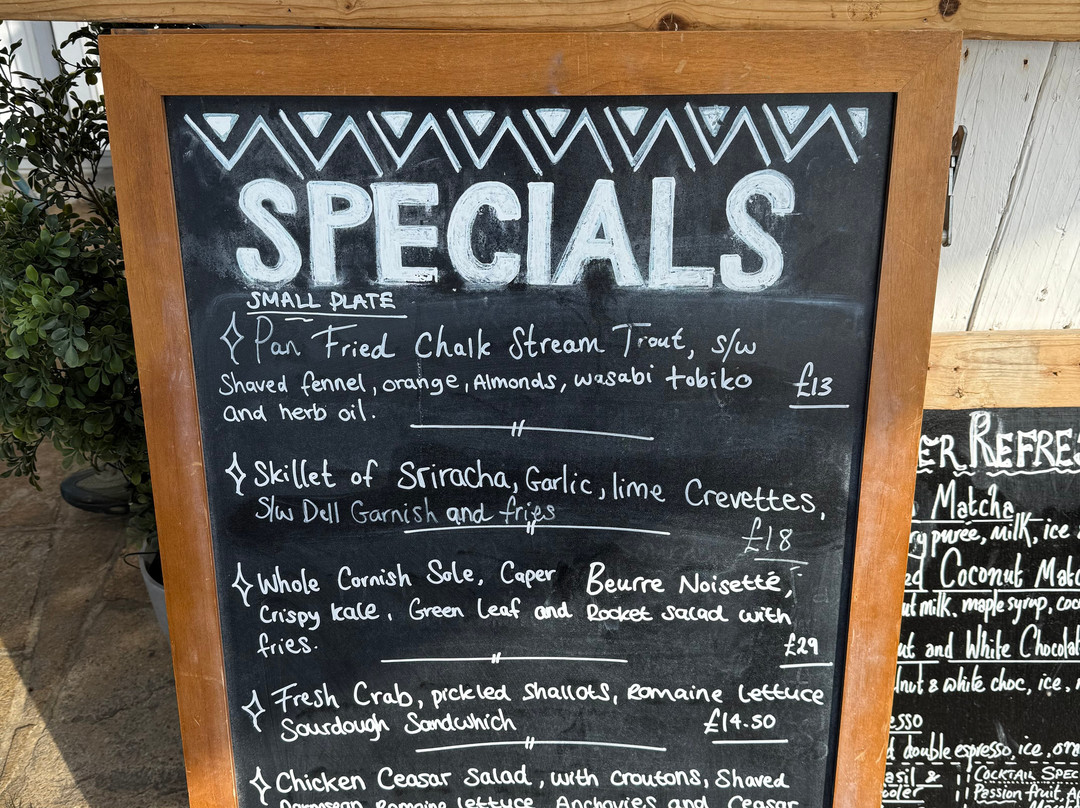 SPECIALS
SMALL PLATE
Pan Fried Chalk Stream Trout, s/w
Shaved fennel, orange, Almonds, wasabi tobiko
and herb oil.
£13
Skillet of Sriracha, Garlic, lime Crevettes,
S/w Dell Garnish and fries
£18
Whole Cornish Sole, Caper Beurre Noisette,
Crispy kale, Green Leaf and Rocket salad with
fries.
£29
Fresh Crab, pickled shallots, Romaine lettuce
Sourdough Sandwhich
£14.50
Chicken Ceasar Salad, with croutons, Shaved
Romaine lettuce, Anchovies and Ceasar
Matcha
purée, Milk, ice
Coconut
milk, maple syrup,
and White
& white choc, ice,
double espresso, ice,
&
COCKTAIL
Passion fruit,